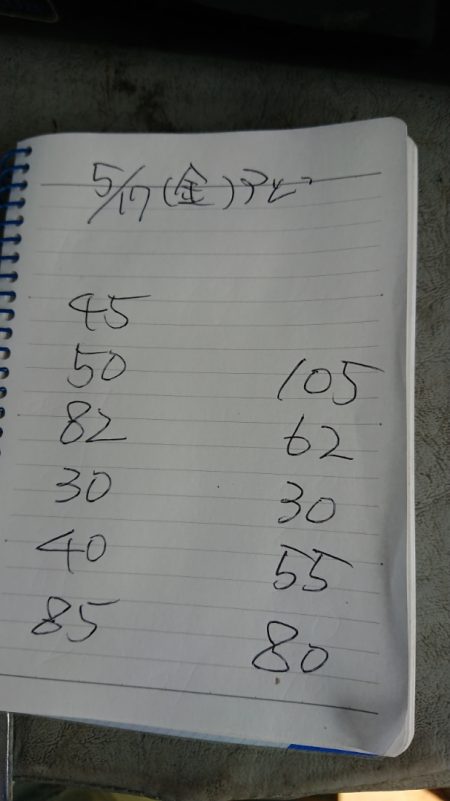 5/17(金)アピア
45
50
82
30
40
85
105
62
30
55
80